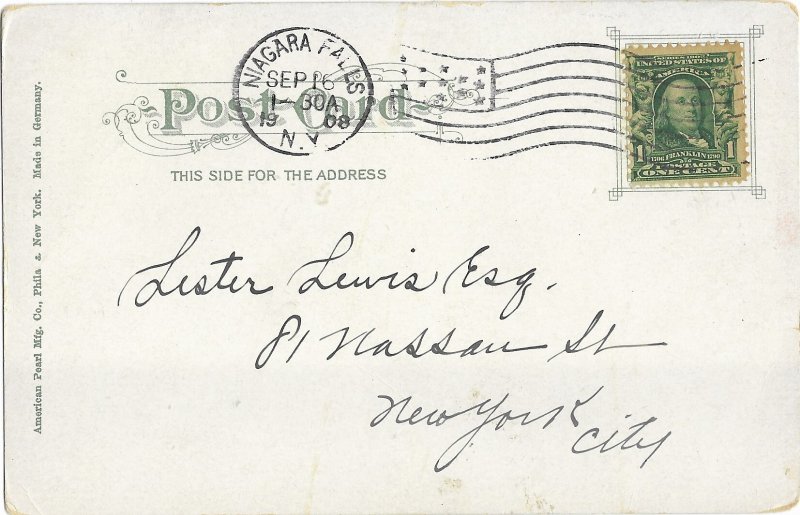 American Pearl Mfg. Co., Phila & New York. Made in Germany.
Post Card
NIAGARA FALLS
SEP 16
1-30A
1908
N.Y.
THIS SIDE FOR THE ADDRESS
SERIES 1902
UNITED STATES OF
AMERICA
1706 FRANKLIN 1790
POSTAGE
1 1
ONE CENT
Lester Lewis Esq.
81 Nassau St
New York
City